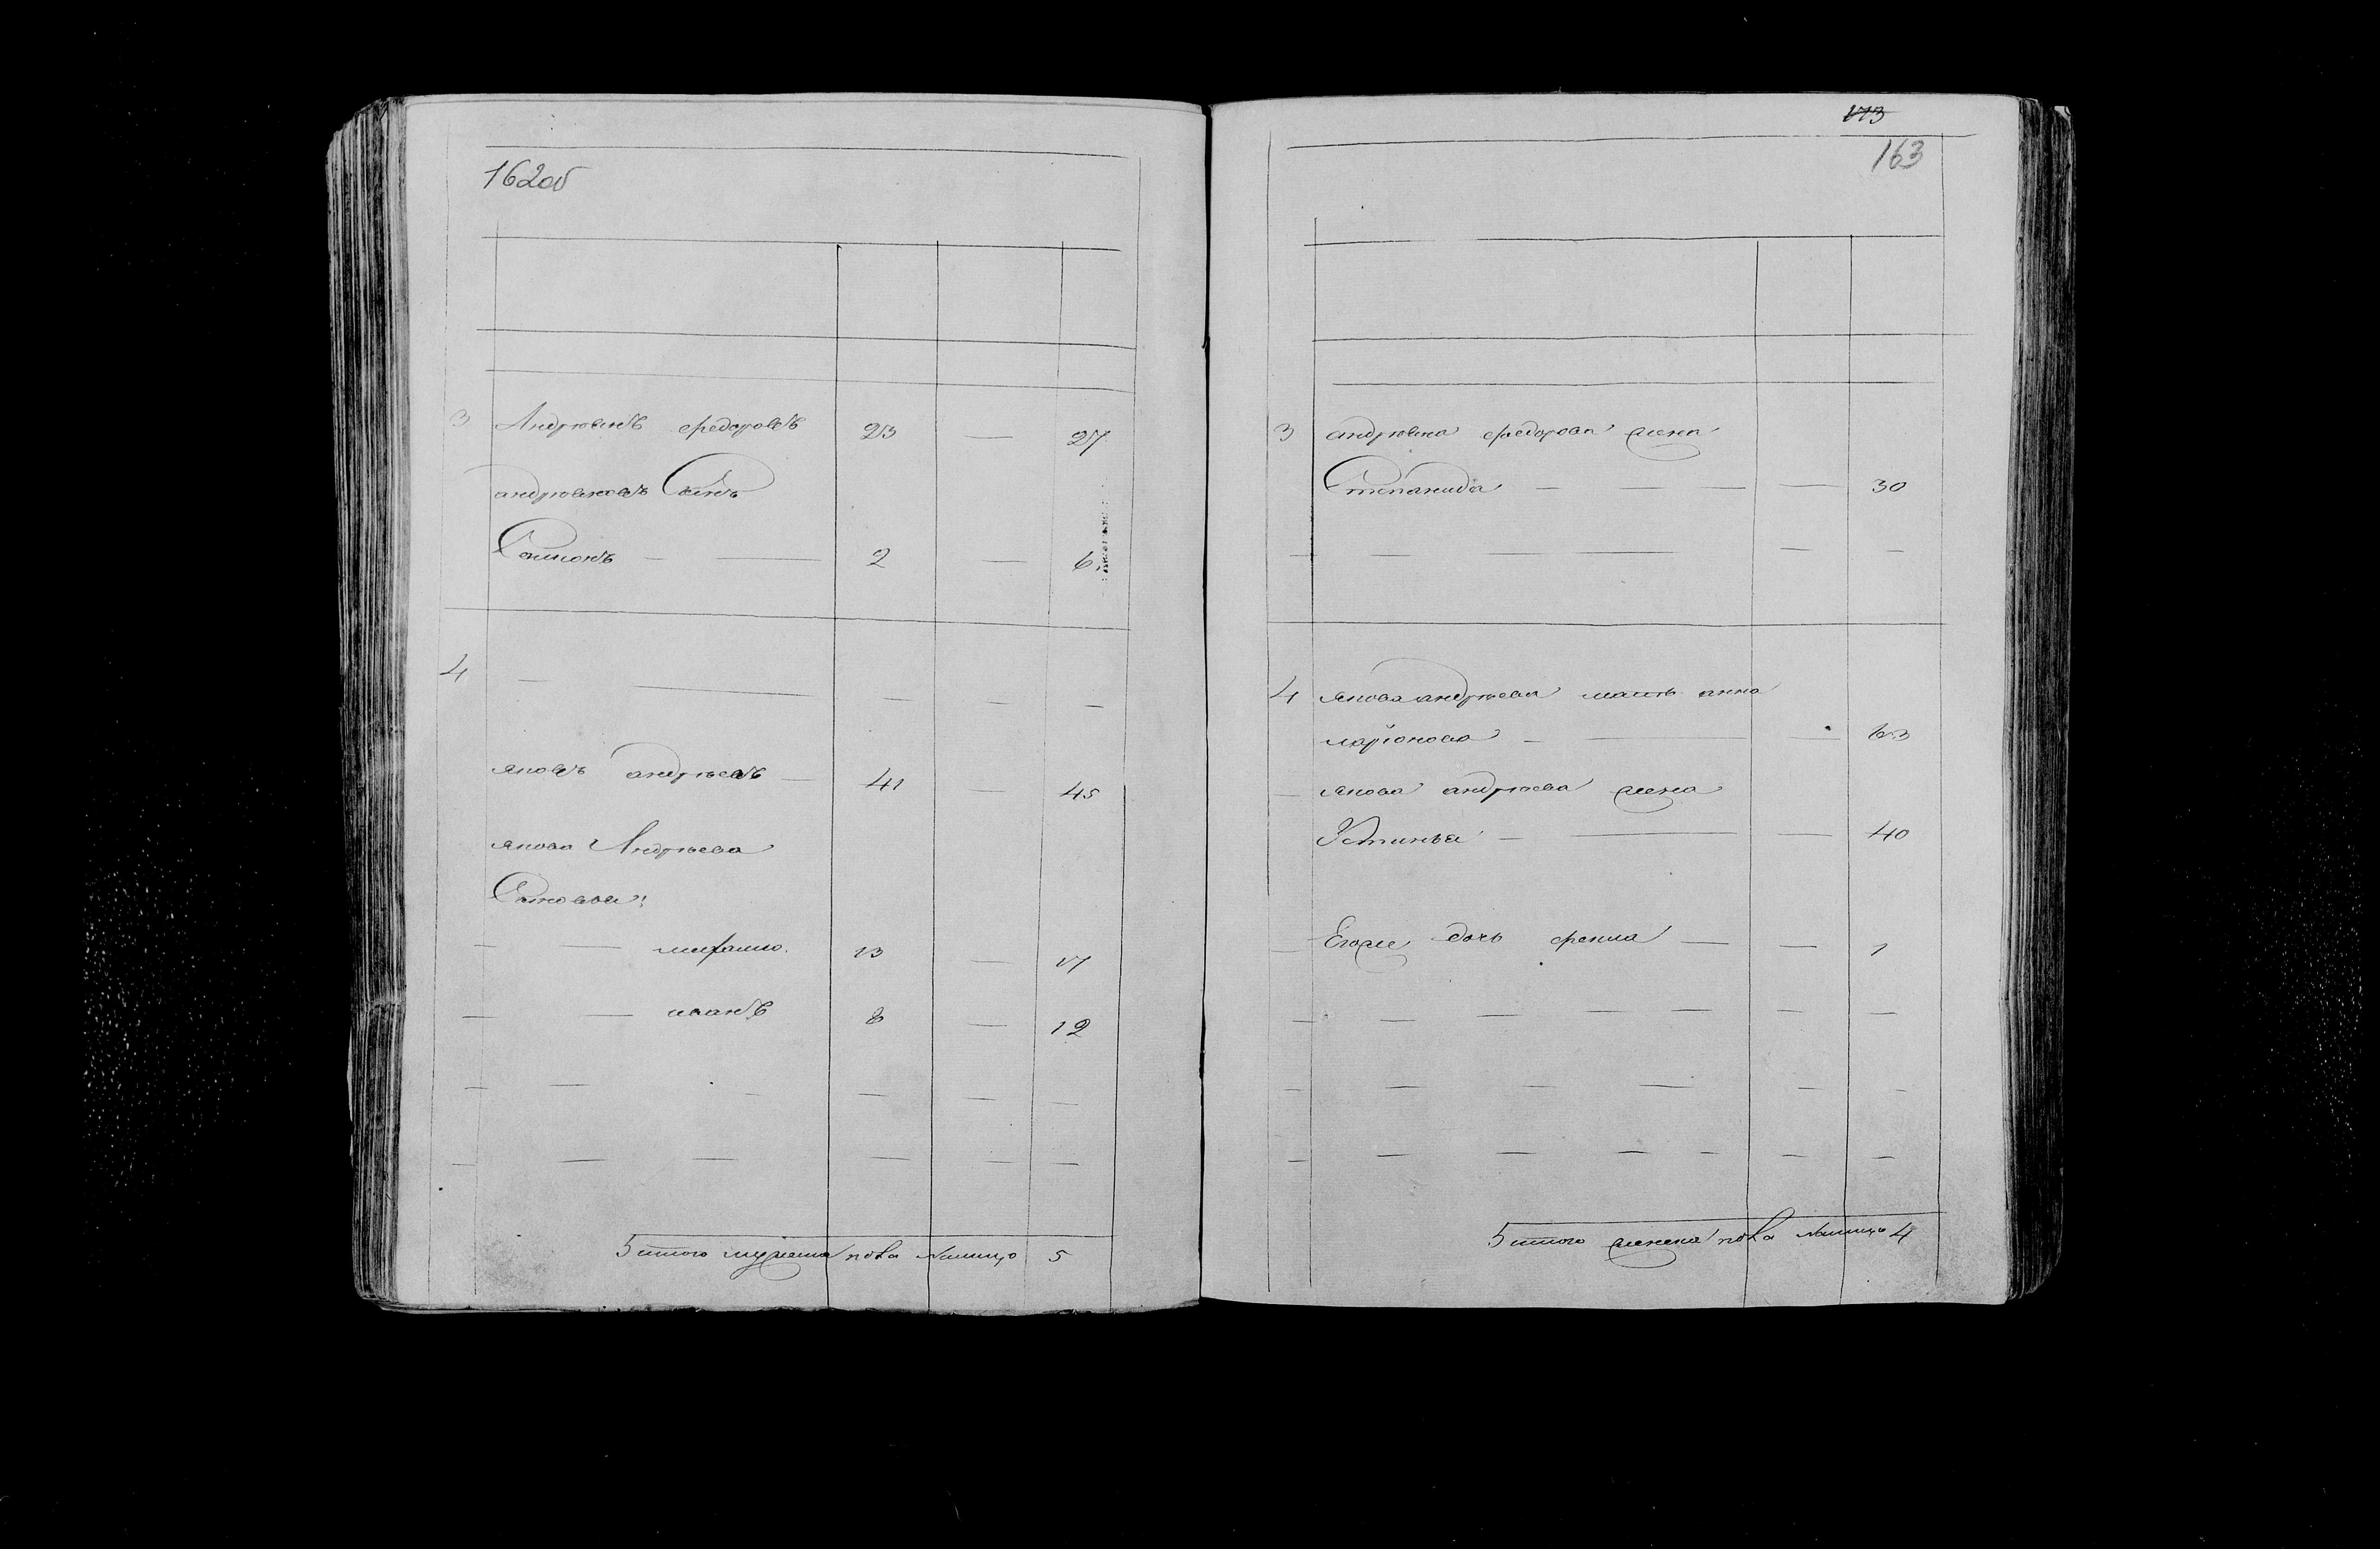 162об
3 Андрюянъ федоровъ 23 — 27
андрюяновъ Сынъ
Самионъ — — 2 — 6
4 — — — — —
яковъ андреевъ — 41 — 45
якова Андреева
Сыновья:
— — 13 — 17
— — иванъ 8 — 12
— — — — — —
— — — — — —
Итого мужеска пола налицо 5
173
163
3 андрюяна федорова жена
Степанида — — — — 30
— — — — —
4 якова андреева мать анна
ларіонова — — — 63
— якова андреева жена
Устинья — — — 40
— Егоже дочь фекла — — 1
— — — — — — —
— — — — — —
— — — — — — —
Итого женска пола налицо 4